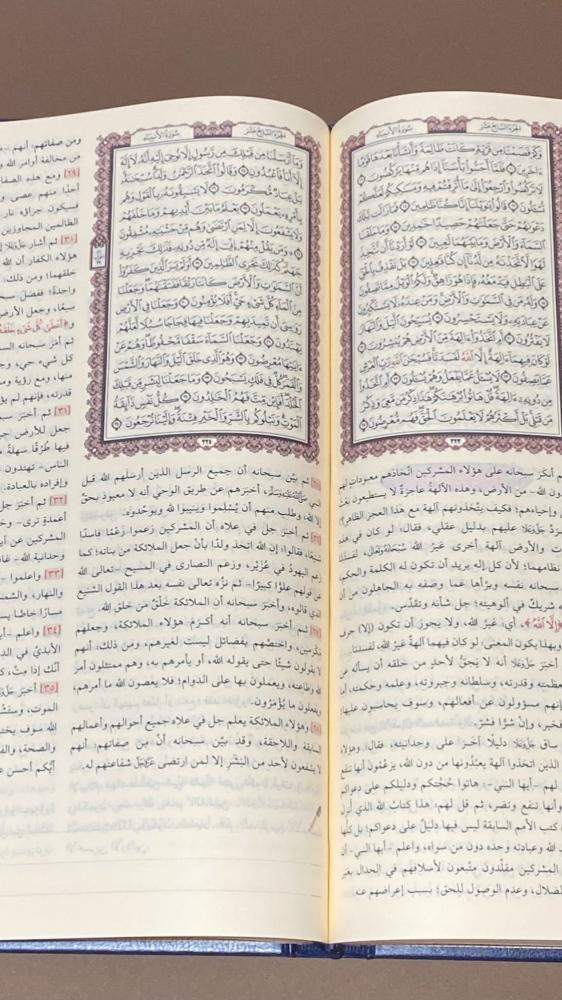 الجزء السابع عشر
سورة الأنبياء
وَكَمْ قَصَمْنَا مِن قَرْيَةٍ كَانَتْ ظَالِمَةً وَأَنشَأْنَا بَعْدَهَا قَوْمًا
ءَاخَرِينَ ۝ فَلَمَّآ أَحَسُّوا۟ بَأْسَنَآ إِذَا هُم مِّنْهَا يَرْكُضُونَ ۝
لَا تَرْكُضُوا۟ وَٱرْجِعُوٓا۟ إِلَىٰ مَآ أُتْرِفْتُمْ فِيهِ وَمَسَٰكِنِكُمْ لَعَلَّكُمْ
تُسْـَٔلُونَ ۝ قَالُوا۟ يَٰوَيْلَنَآ إِنَّا كُنَّا ظَٰلِمِينَ ۝ فَمَا زَالَت تِّلْكَ
دَعْوَىٰهُمْ حَتَّىٰ جَعَلْنَٰهُمْ حَصِيدًا خَٰمِدِينَ ۝ وَمَا خَلَقْنَا
ٱلسَّمَآءَ وَٱلْأَرْضَ وَمَا بَيْنَهُمَا لَٰعِبِينَ ۝ لَوْ أَرَدْنَآ أَن نَّتَّخِذَ
لَهْوًا لَّٱتَّخَذْنَٰهُ مِن لَّدُنَّآ إِن كُنَّا فَٰعِلِينَ ۝ بَلْ نَقْذِفُ بِٱلْحَقِّ
عَلَى ٱلْبَٰطِلِ فَيَدْمَغُهُۥ فَإِذَا هُوَ زَاهِقٌ وَلَكُمُ ٱلْوَيْلُ مِمَّا تَصِفُونَ ۝
وَلَهُۥ مَن فِى ٱلسَّمَٰوَٰتِ وَٱلْأَرْضِ وَمَنْ عِندَهُۥ لَا يَسْتَكْبِرُونَ
عَنْ عِبَادَتِهِۦ وَلَا يَسْتَحْسِرُونَ ۝ يُسَبِّحُونَ ٱلَّيْلَ وَٱلنَّهَارَ
لَا يَفْتُرُونَ ۝ أَمِ ٱتَّخَذُوٓا۟ ءَالِهَةً مِّنَ ٱلْأَرْضِ هُمْ يُنشِرُونَ ۝
لَوْ كَانَ فِيهِمَآ ءَالِهَةٌ إِلَّا ٱللَّهُ لَفَسَدَتَا فَسُبْحَٰنَ ٱللَّهِ رَبِّ ٱلْعَرْشِ
عَمَّا يَصِفُونَ ۝ لَا يُسْـَٔلُ عَمَّا يَفْعَلُ وَهُمْ يُسْـَٔلُونَ ۝ أَمِ ٱتَّخَذُوا۟
مِن دُونِهِۦٓ ءَالِهَةً قُلْ هَاتُوا۟ بُرْهَٰنَكُمْ هَٰذَا ذِكْرُ مَن مَّعِىَ وَذِكْرُ
مَن قَبْلِى بَلْ أَكْثَرُهُمْ لَا يَعْلَمُونَ ٱلْحَقَّ فَهُم مُّعْرِضُونَ ۝
٣٢٣
ثم أنكَرَ سبحانه على هؤلاء المشركين اتخاذَهم معبودات لهم
دون الله - من الأرض، وهذه الآلهةُ عاجزةٌ لا يستطيعون بعثَ
وإحياءهم؛ فكيف يتَّخذونهم آلهة مع هذا العجز الظاهر؟
بدليل عقلي، فقال: لو كان في هذه
ت والأرض آلهة أخرى غيرُ الله سُبْحَانَهُوَتَعَالَى، لفسدتا
نظامهما؛ لأن كل إله يريد أن تكون له الكلمة والحكم،
سبحانه نفسه وبرَّأها عما وصفه به الجاهلون من أن
شريكًا في ألوهيته؛ جل شأنه وتقدَّس.
﴿إِلَّا ٱللَّهُ﴾، أي: غير الله، ولا يجوز أن تكون (إلا) حرف
وبهذا يكون المعنى: لو كان فيهما آلهةٌ غيرُ الله، لفسدتا.
أخبَرَ جَلَّوَعَلَا أنه لا يَحِقُّ لأحدٍ من خلقه أن يسأله عن
عظمته وقدرته، وسلطانه وجبروته، وعلمه وحكمته، أما
إنهم مسؤولون عن أفعالهم، وسوف يحاسبون عليها؛
فخير، وإنْ شرًّا فشرٌّ.
ساق جَلَّوَعَلَا دليلًا آخرَ على وحدانيته، فقال: وهؤلاء
الذين اتخذوا آلهة يعبُدونها من دون الله، يزعُمون أنها تنفع
لهم -أيها النبي-: هاتوا حُجَّتكم ودليلكم على دعواكم
وأنها تنفع وتضر، ثم قل لهم: هذا كتابُ الله الذي أنزل
كتب الأمم السابقة ليس فيها دليلٌ على دعواكم؛ بل كلها
الله وعبادته وحده دون من سواه، واعلم -أيها النبي- أن
المشركين مقلِّدون متبعون لأسلافهم في الجدال بغير
لضلال، وعدم الوصول للحق؛ بسبب إعراضهم عنه.
الجزء السابع عشر
سورة الأنبياء
وَمَآ أَرْسَلْنَا مِن قَبْلِكَ مِن رَّسُولٍ إِلَّا نُوحِىٓ إِلَيْهِ أَنَّهُۥ لَآ إِلَٰهَ
إِلَّآ أَنَا۠ فَٱعْبُدُونِ ۝ وَقَالُوا۟ ٱتَّخَذَ ٱلرَّحْمَٰنُ وَلَدًا سُبْحَٰنَهُۥ
بَلْ عِبَادٌ مُّكْرَمُونَ ۝ لَا يَسْبِقُونَهُۥ بِٱلْقَوْلِ وَهُم
بِأَمْرِهِۦ يَعْمَلُونَ ۝ يَعْلَمُ مَا بَيْنَ أَيْدِيهِمْ وَمَا خَلْفَهُمْ
وَلَا يَشْفَعُونَ إِلَّا لِمَنِ ٱرْتَضَىٰ وَهُم مِّنْ خَشْيَتِهِۦ مُشْفِقُونَ
۝ وَمَن يَقُلْ مِنْهُمْ إِنِّىٓ إِلَٰهٌ مِّن دُونِهِۦ فَذَٰلِكَ نَجْزِيهِ
جَهَنَّمَ كَذَٰلِكَ نَجْزِى ٱلظَّٰلِمِينَ ۝ أَوَلَمْ يَرَ ٱلَّذِينَ كَفَرُوٓا۟
أَنَّ ٱلسَّمَٰوَٰتِ وَٱلْأَرْضَ كَانَتَا رَتْقًا فَفَتَقْنَٰهُمَا وَجَعَلْنَا
مِنَ ٱلْمَآءِ كُلَّ شَىْءٍ حَىٍّ أَفَلَا يُؤْمِنُونَ ۝ وَجَعَلْنَا فِى ٱلْأَرْضِ
رَوَٰسِىَ أَن تَمِيدَ بِهِمْ وَجَعَلْنَا فِيهَا فِجَاجًا سُبُلًا لَّعَلَّهُمْ
يَهْتَدُونَ ۝ وَجَعَلْنَا ٱلسَّمَآءَ سَقْفًا مَّحْفُوظًا وَهُمْ عَنْ
ءَايَٰتِهَا مُعْرِضُونَ ۝ وَهُوَ ٱلَّذِى خَلَقَ ٱلَّيْلَ وَٱلنَّهَارَ وَٱلشَّمْسَ
وَٱلْقَمَرَ كُلٌّ فِى فَلَكٍ يَسْبَحُونَ ۝ وَمَا جَعَلْنَا لِبَشَرٍ مِّن قَبْلِكَ
ٱلْخُلْدَ أَفَإِي۟ن مِّتَّ فَهُمُ ٱلْخَٰلِدُونَ ۝ كُلُّ نَفْسٍ ذَآئِقَةُ
ٱلْمَوْتِ وَنَبْلُوكُم بِٱلشَّرِّ وَٱلْخَيْرِ فِتْنَةً وَإِلَيْنَا تُرْجَعُونَ ۝
٣٢٤
ثم بيَّن سبحانه: أن جميع الرسل الذين أرسلهم الله قبل
أخبَرَهم عن طريق الوحي أنه لا معبودَ بحقٍّ
إلا الله، وطلب منهم أن يُسلِموا وينيبوا لله ويوحِّدوه.
جلَّ في علاه: أن المشركين زعَموا زعمًا فاسدًا
فقالوا: إن الله اتخذ ولدًا بأنْ جعل الملائكة من بناته؛ كما
زعم اليهودُ في عُزَيْرٍ، وزعم النصارى في المسيح -تعالى الله
عن قولهم علوًّا كبيرًا- ثم نزَّه تعالى نفسه بعد هذا القول الشنيع
الذي قالوه، وأخبَرَ سبحانه أن الملائكة خَلْقٌ مِن خلق الله.
سبحانه أنه أكرَمَ هؤلاء الملائكة، وجعلهم
مُكْرَمين، واختصَّهم بفضائلَ ليست لغيرهم، ومن ذلك: أنهم
لا يقولون شيئًا حتى يقوله الله، أو يأمرهم به، وهم ممتثلون أمر
الله وطاعته، ويعملون بها على الدوام؛ فلا يعصُون الله ما أمرهم،
ويفعلون ما يُؤمَرون.
وهؤلاء الملائكة يعلم جل في علاه جميع أحوالهم وأعمالهم
السابقة واللاحقة، وقد بيَّن سبحانه أن من صفاتهم: أنهم
لا يشفعون لأحد من البشر إلا لمن ارتضى عَزَّوَجَلَّ شفاعتهم له.
ومن صفاتهم: أنهم -
من مخالفة أوامر الله
[٢٩] ومع هذه الصفا
أحدًا منهم عصى
فسيكون جزاؤه نار
الظالمين المجاوزين
[٣٠] ثم أشار جَلَّوَعَلَا
هؤلاء الكفار أن الله
خلقهما؛ ومن ذلك:
واحدةً؛ ففصَلَ سبحا
سبعًا، وجعل الأرض
ثم أخبَرَ سبحانه
كل شيء حي،
منها، ومع رؤية
قدرته، فإنهم لم
[٣١] ثم أخبَرَ
جعل للأرض
فيها طُرُقًا سهلةً
الناس - تهتدون
وإفراده بالعبادة.
[٣٢] ثم أخبَرَ جل
أعمدةٍ تُرى -
المشركين عن
وحدانية الله -
[٣٣] واعلموا -
والنهار، والشمس
مسارًا خاصًّا
[٣٤] واعلم -
الأبديَّ في الد
أنَّك إذا متَّ
[٣٥] أخبَرَ
الموت،
الله سوف يختبر
والصحة،
أيُّكم أحسن ع